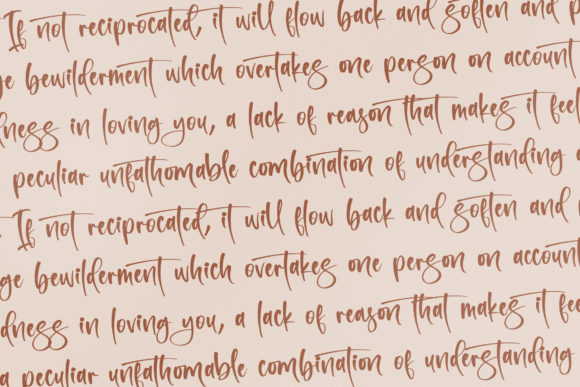 If not reciprocated, it will flow back and soften and p
ge bewilderment which overtakes one person on account
dness in loving you, a lack of reason that makes it feel
peculiar unfathomable combination of understanding
. If not reciprocated, it will flow back and soften and
ge bewilderment which overtakes one person on account
dness in loving you, a lack of reason that makes it fee
a peculiar unfathomable combination of understanding